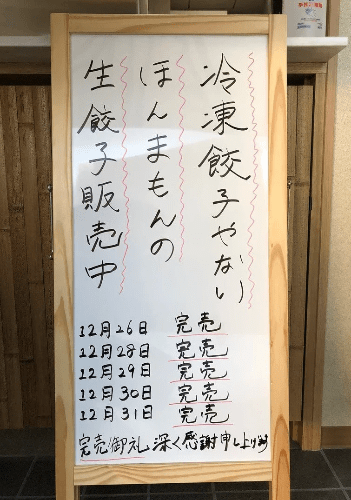 冷凍餃子やない
ほんまもんの
生餃子販売中
12月26日 完売
12月28日 完売
12月29日 完売
12月30日 完売
12月31日 完売
完売御礼 深く感謝申し上げます